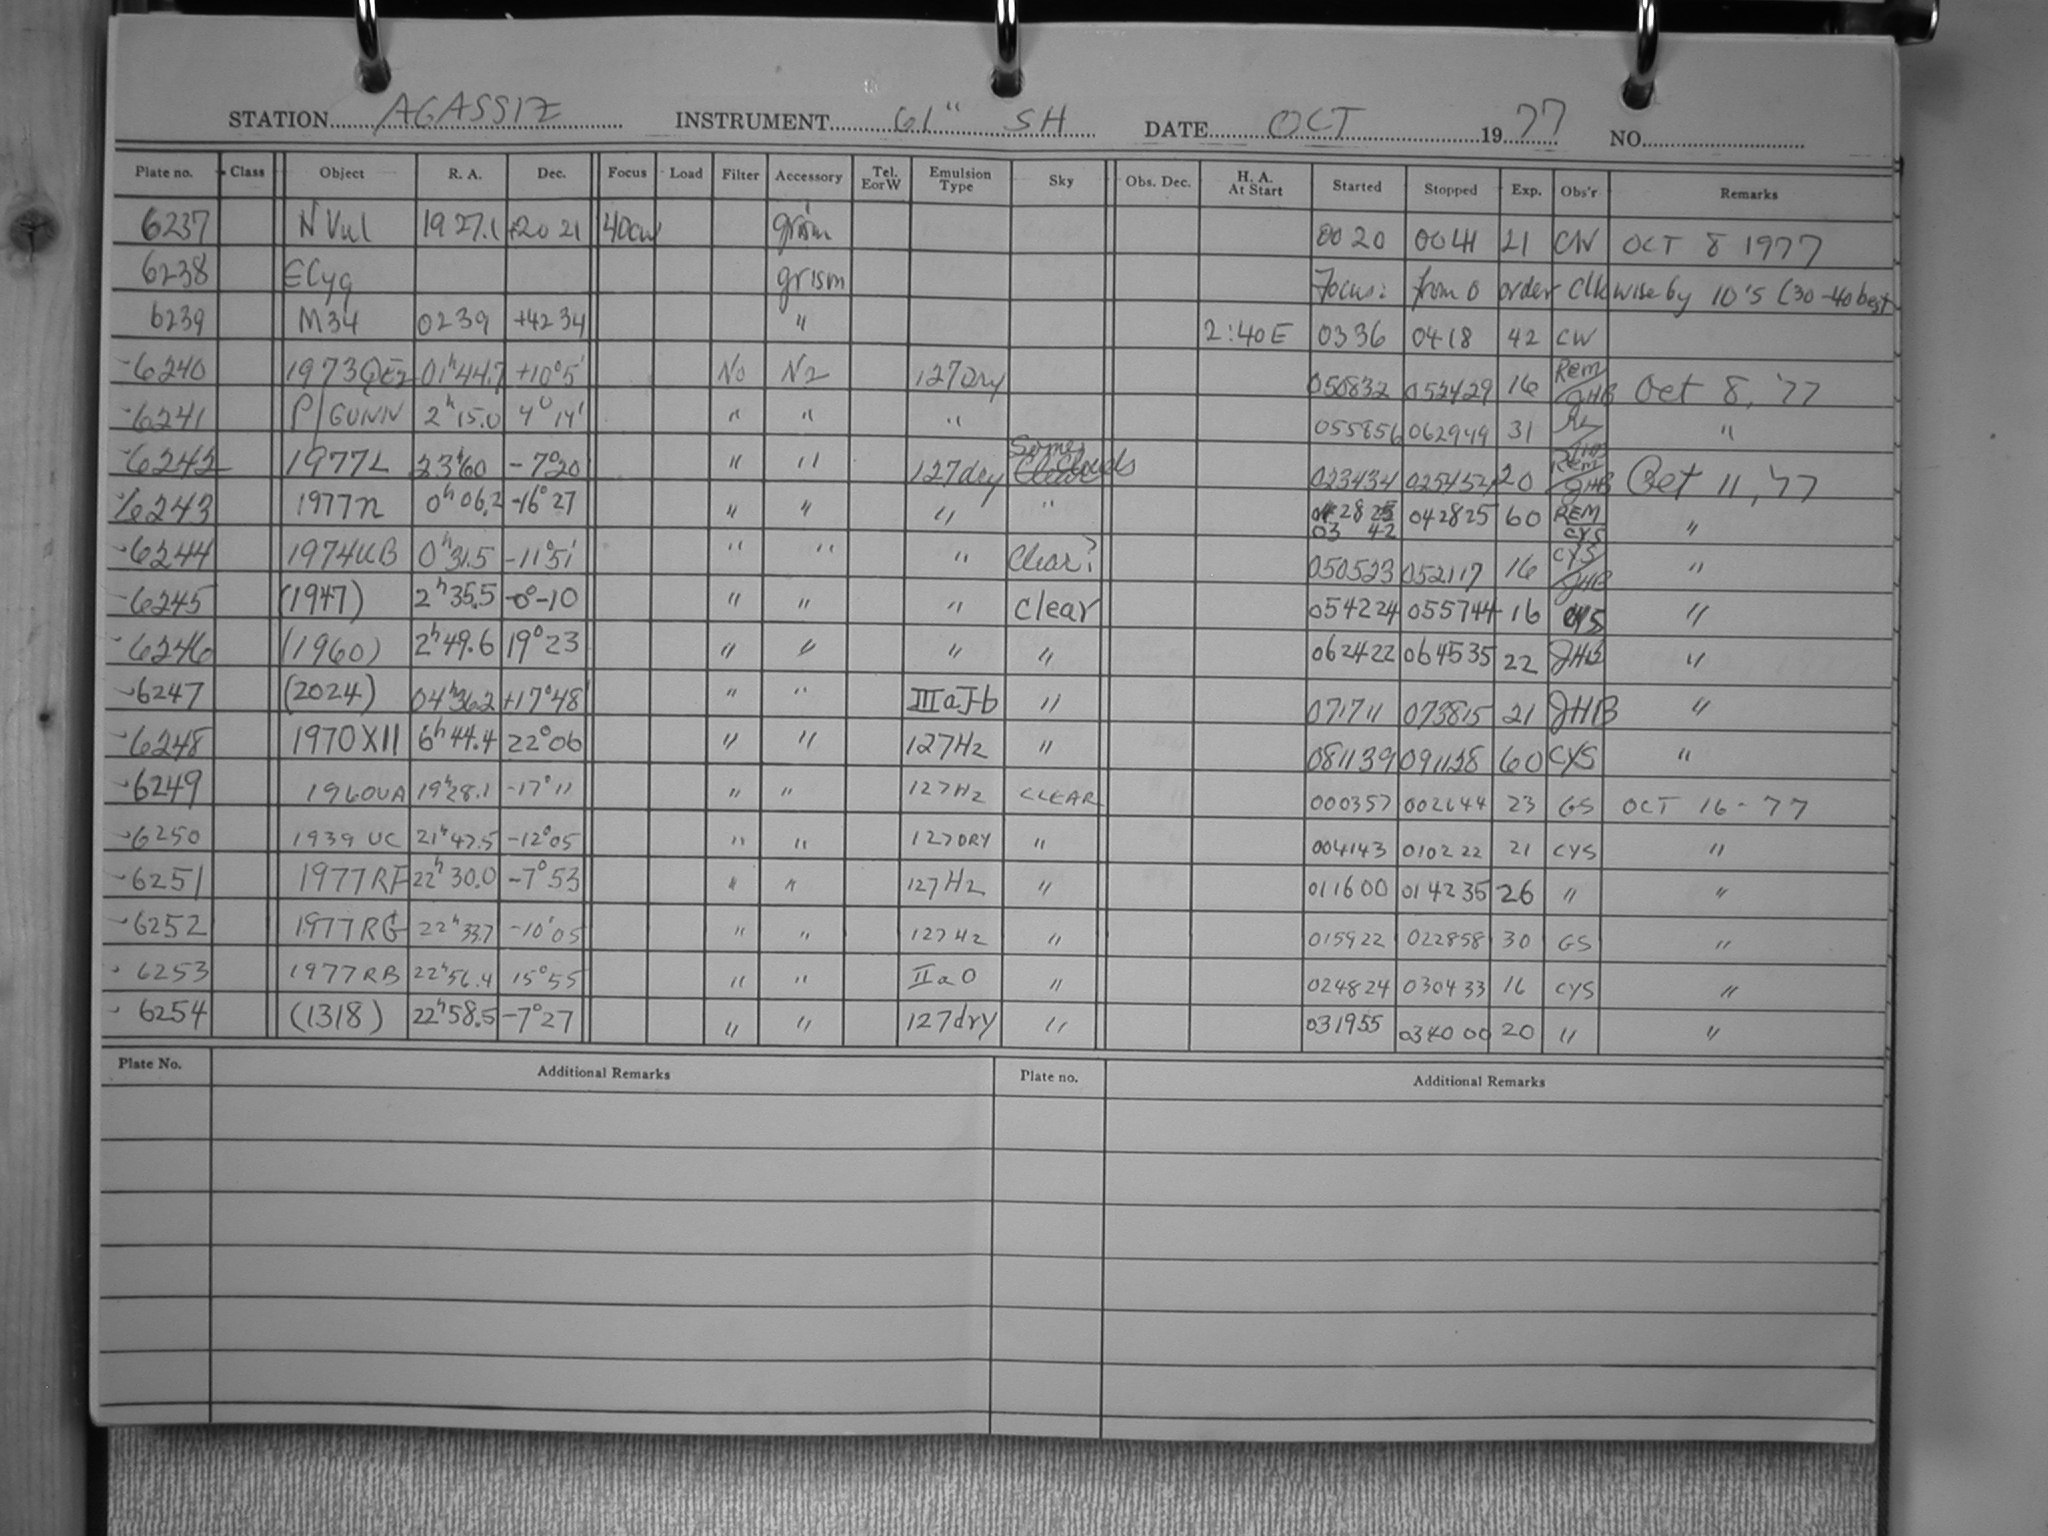 STATION AGASSIZ INSTRUMENT 61" SH DATE OCT 1977 NO.
Plate no. Class Object R. A. Dec. Focus Load Filter Accessory Tel. E or W Emulsion Type Sky Obs. Dec. H. A. At Start Started Stopped Exp. Obs'r Remarks
6237 N Vul 19 27.1 +20 21 40cw grism 0020 0041 21 CW OCT 8 1977
6238 ECyg grism Focus: from 0 order Clkwise by 10's (30-40 best
6239 M34 0239 +42 34 " 2:40E 0336 0418 42 CW
6240 1973QE2 01h44.7 +10°5' No N2 127Dry 050832 052429 16 Rem/JHB Oct 8, '77
6241 P/GUNN 2h15.0 4° 14' " " " 055856 062949 31 "
6242 1977L 23h60 -7°20 " " 127dry Some Clouds 023434 025452 20 Rem/JHB Oct 11, '77
6243 1977n 0h06.2 -16°27 " " " " 03 42 042825 60 REM CYS "
6244 1974UB 0h31.5 -11°51' " " " Clear? 050523 052117 16 CYS/JHB "
6245 (1947) 2h35.5 -0°-10 " " " clear 054224 055744 16 CYS "
6246 (1960) 2h49.6 19°23 " " " " 062422 064535 22 JHB "
6247 (2024) 04h36.2 +17°48' " " IIIaJ-b " 071711 073815 21 JHB "
6248 1970XII 6h44.4 22°06 " " 127H2 " 081139 091138 60 CYS "
6249 1960UA 19h28.1 -17°11 " " 127H2 CLEAR 000357 002644 23 GS OCT 16-77
6250 1939 UC 21h47.5 -12°05 " " 127DRY " 004143 010222 21 CYS "
6251 1977RF 22h30.0 -7°53 " " 127H2 " 011600 014235 26 " "
6252 1977RG 22h33.7 -10°05 " " 127H2 " 015922 022858 30 GS "
6253 1977RB 22h56.4 15°55 " " IIaO " 024824 030433 16 CYS "
6254 (1318) 22h58.5 -7°27 " " 127dry " 031955 034000 20 " "
Plate No. Additional Remarks Plate no. Additional Remarks